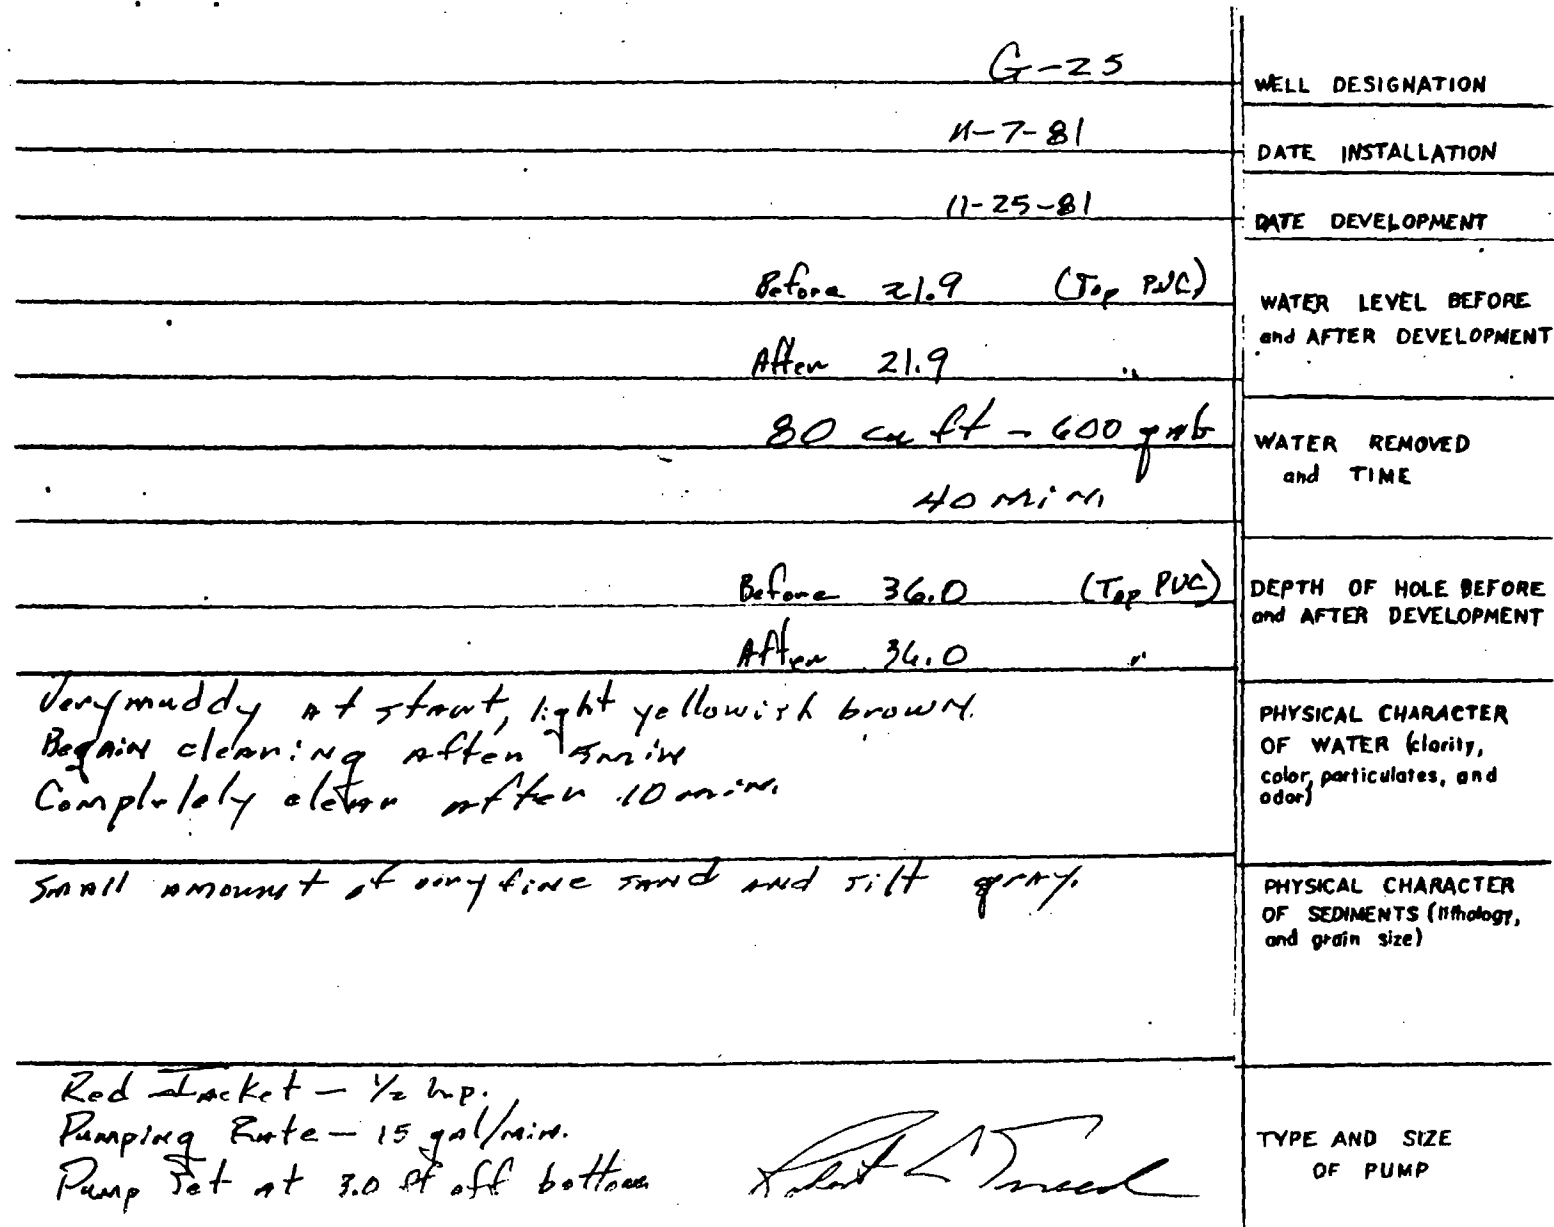 G-25
WELL DESIGNATION
11-7-81
DATE INSTALLATION
11-25-81
DATE DEVELOPMENT
Before 21.9 (Top PVC)
WATER LEVEL BEFORE
and AFTER DEVELOPMENT
After 21.9 "
80 cu ft - 600 gals
WATER REMOVED
and TIME
40 min.
Before 36.0 (Top PVC)
DEPTH OF HOLE BEFORE
and AFTER DEVELOPMENT
After 36.0 "
Very muddy at start, light yellowish brown.
Begain clearing after 5 min
Completely clear after 10 min.
PHYSICAL CHARACTER
OF WATER (clarity,
color, particulates, and
odor)
Small amount of very fine sand and silt gray.
PHYSICAL CHARACTER
OF SEDIMENTS (lithology,
and grain size)
Red Jacket - 1/2 h.p.
Pumping Rate - 15 gal/min.
Pump Set at 3.0 ft off bottom
Robert
TYPE AND SIZE
OF PUMP